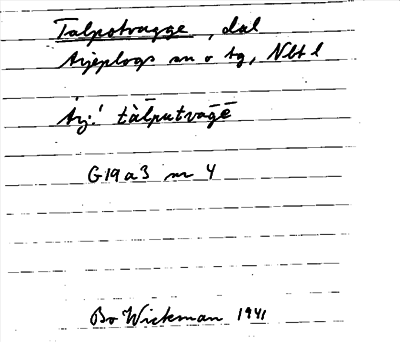 Talpotvagge, dal
Arjeplogs sn o tg, Nbt l
Arj: tàlputvāgē
G19a3 nr 4
Bo Wickman 1941